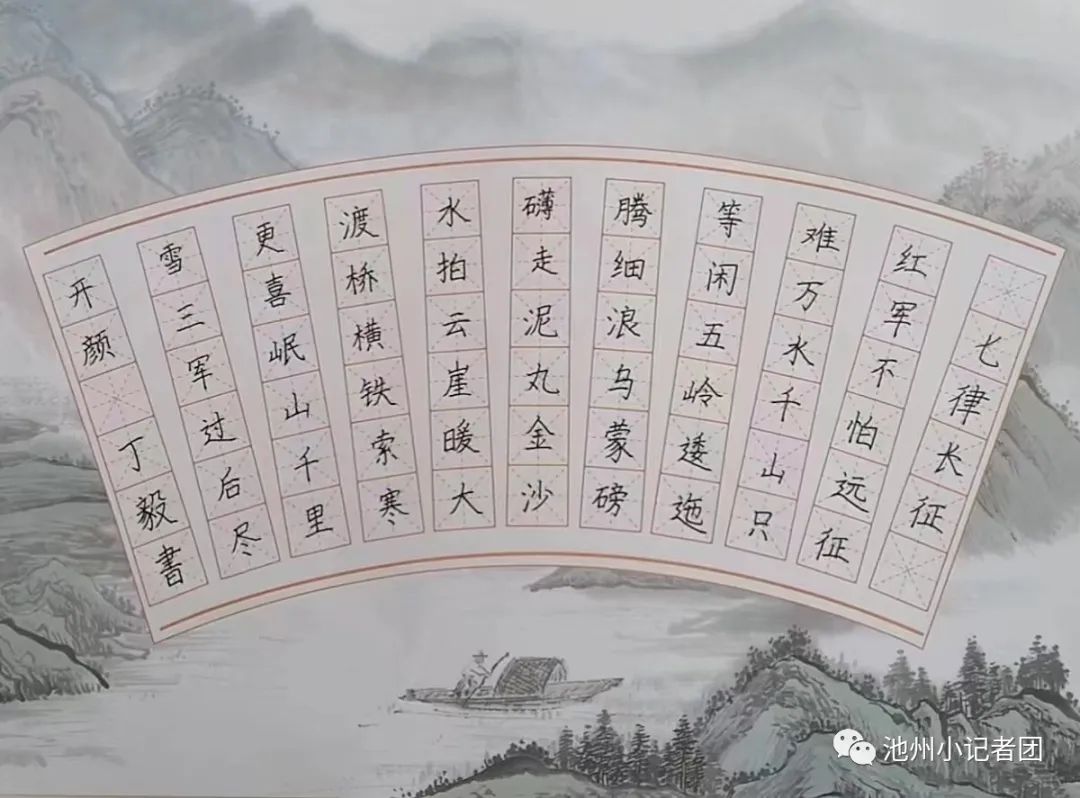 七律长征
红军不怕远征
难万水千山只
等闲五岭逶迤
腾细浪乌蒙磅
礴走泥丸金沙
水拍云崖暖大
渡桥横铁索寒
更喜岷山千里
雪三军过后尽
开颜 丁毅書
池州小记者团